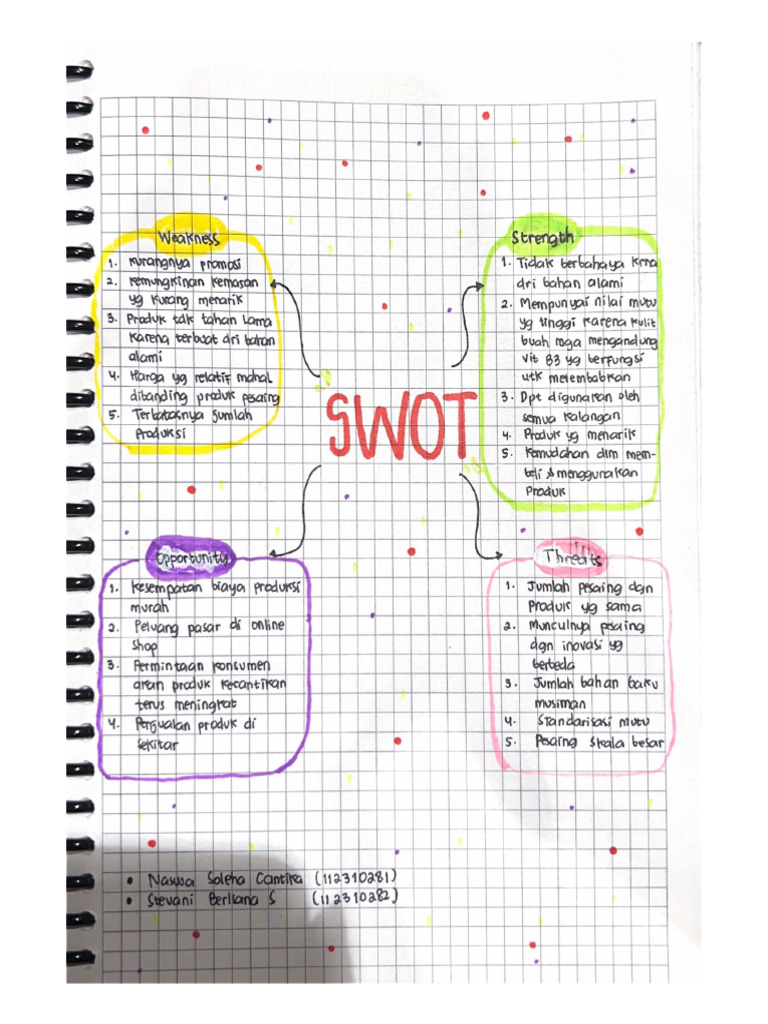 Weakness
1. Kurangnya promosi
2. Kemungkinan Kemasan
yg Kurang menarik
3. Produk tdk tahan Lama
Karena terbuat dri bahan
alami
4. Harga yg relatif mahal
ditanding produk pesaing
5. Terbatasnya Jumlah
Produksi
Strength
1. Tidak berbahaya krna
dri bahan alami
2. Mempunyai nilai mutu
yg tinggi Karena Kulit
buah naga mengandung
vit B3 yg berfungsi
utk melembabkan
3. Dpt digunakan oleh
semua Kalangan
4. Produk yg menarik
5. Kemudahan dlm mem-
beli & menggunakan
Produk
SWOT
Opportunity
1. Kesempatan biaya produksi
murah
2. Peluang pasar di online
shop
3. Permintaan Konsumen
akan produk Kecantikan
terus meningkat
4. Penjualan produk di
sekitar
Threats
1. Jumlah pesaing dgn
Produk yg sama
2. Munculnya pesaing
dgn inovasi yg
berbeda
3. Jumlah bahan baku
musiman
4. Standarisasi mutu
5. Pesaing skala besar
• Naswa Soleha Cantika (112310281)
• Stevani Berliana S (112310282)